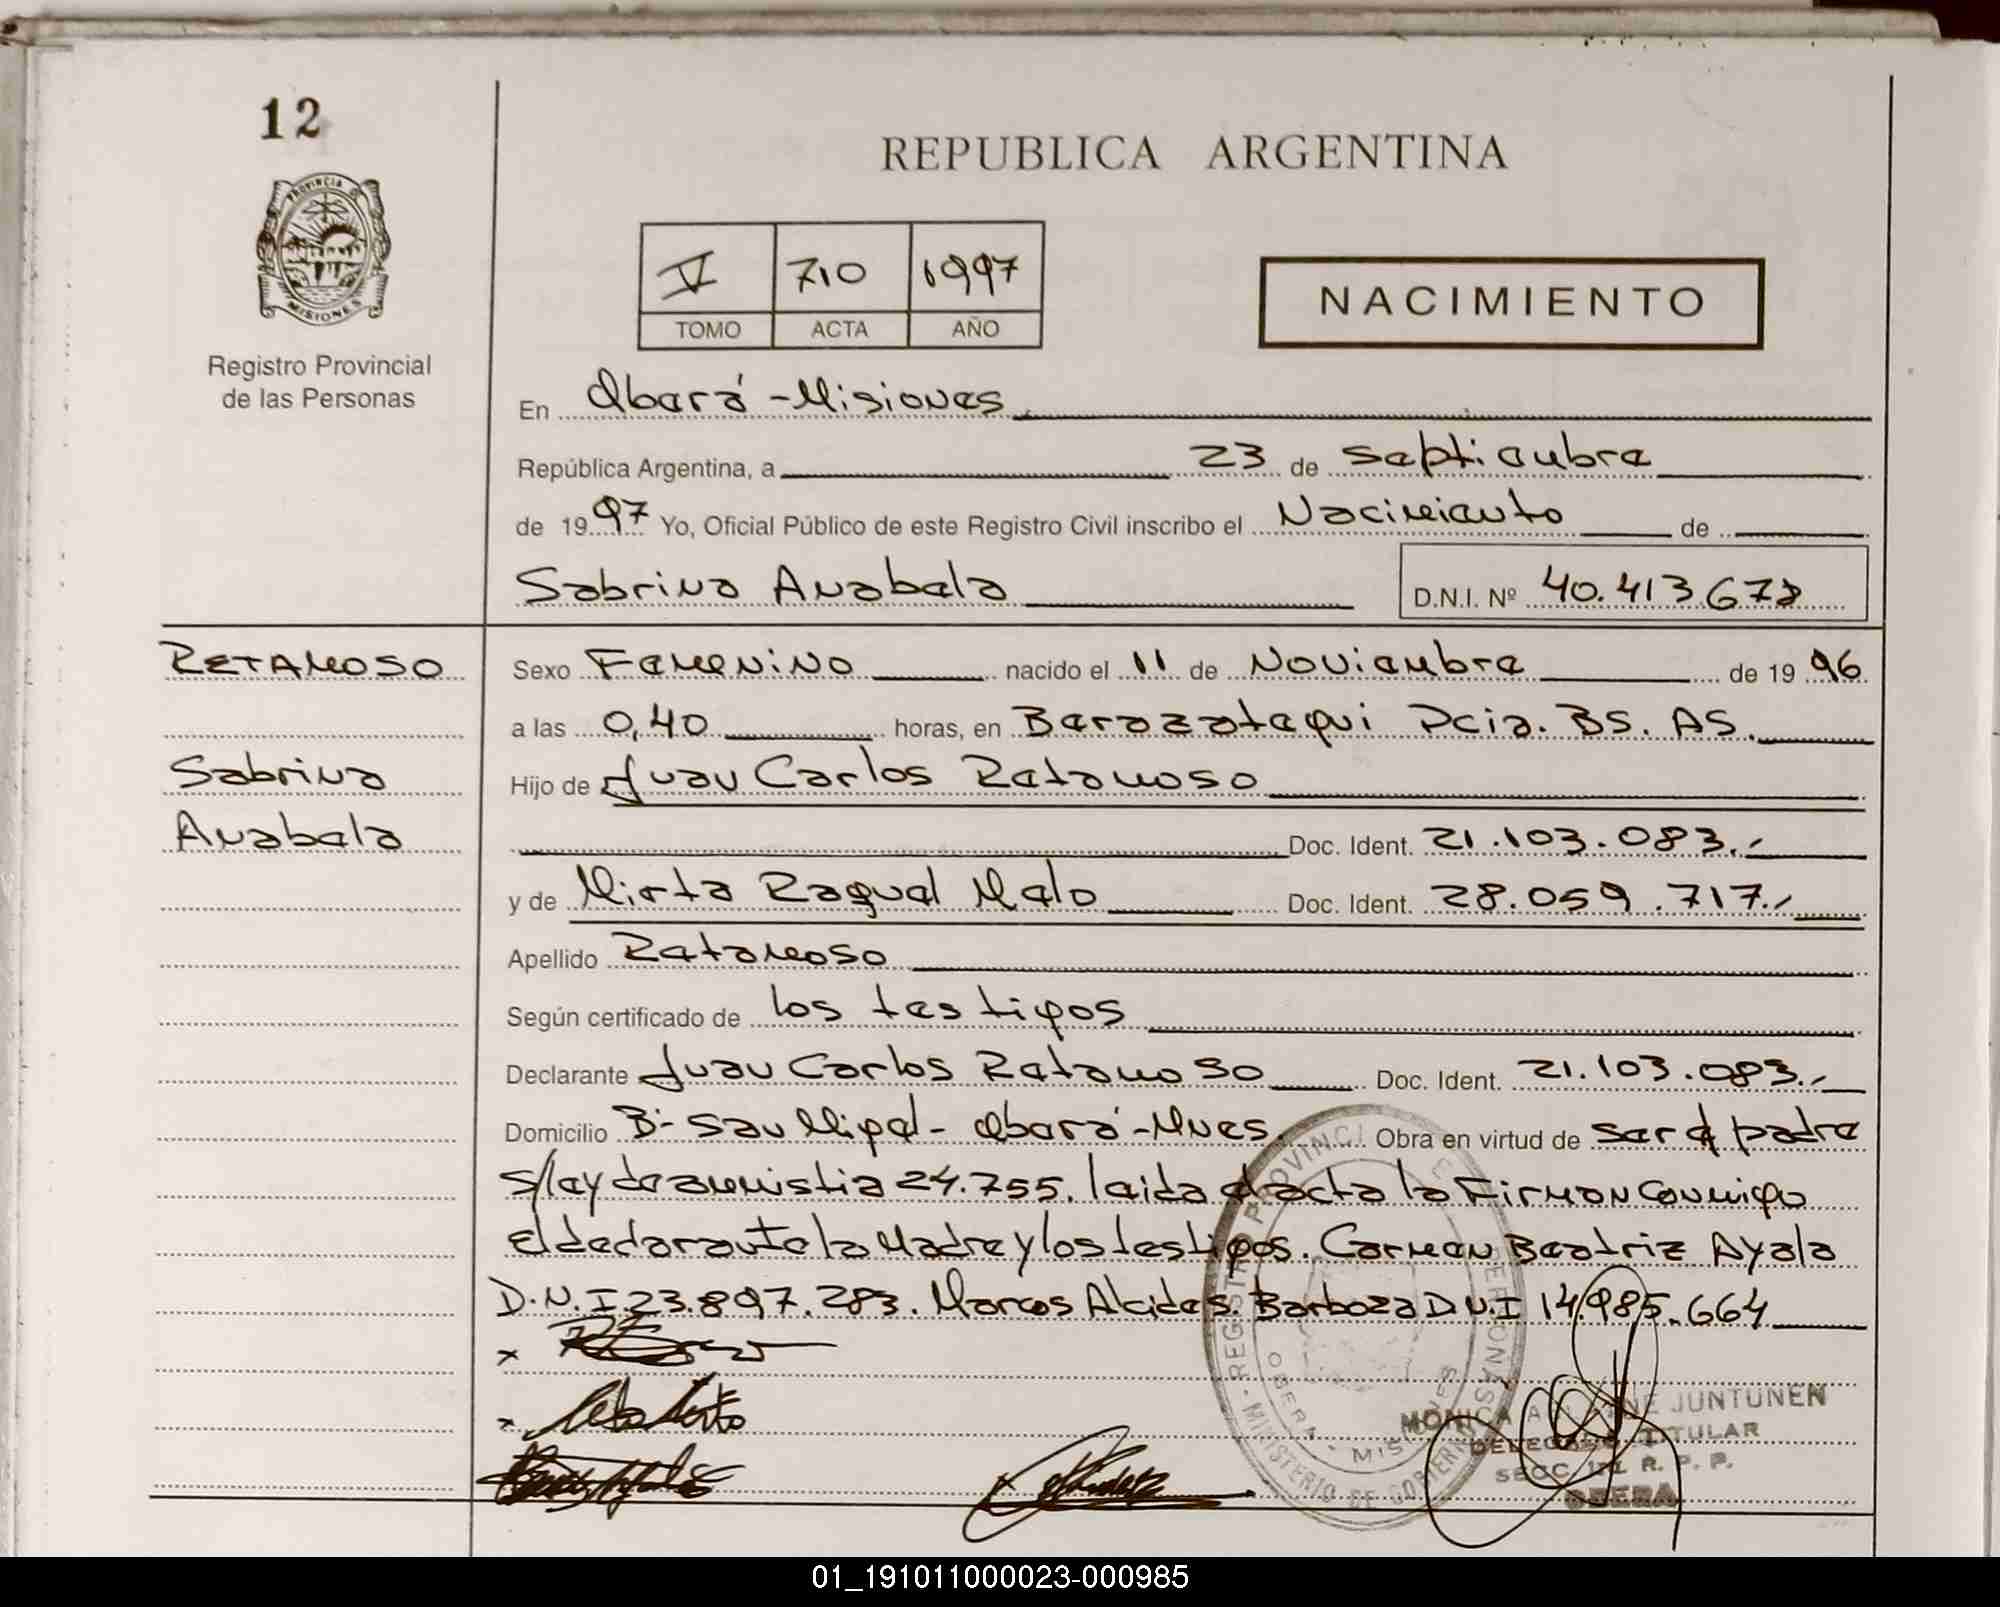 12
PROVINCIA D
MISIONES
Registro Provincial
de las Personas
REPUBLICA ARGENTINA
V 710 1997
TOMO ACTA AÑO
NACIMIENTO
En Oberá - Misiones
República Argentina, a 23 de septiembre
de 1997 Yo, Oficial Público de este Registro Civil inscribo el Nacimiento de
Sabrina Anabela D.N.I. Nº 40.413.678
RETAMOSO
Sabrina
Anabela
Sexo Femenino nacido el 11 de Noviembre de 1996
a las 0,40 horas, en Berazategui Pcia. BS. AS.
Hijo de Juan Carlos Retamoso
Doc. Ident. 21.103.083.-
y de Mirta Raquel Melo Doc. Ident. 28.059.717.-
Apellido Retamoso
Según certificado de los testigos
Declarante Juan Carlos Retamoso Doc. Ident. 21.103.083.-
Domicilio Bº San Migel - Oberá - Mnes. Obra en virtud de ser el padre
s/ley de amnistia 24.755. leida el acta la Firman Conmigo
el declarante la Madre y los testigos. Carmen Beatriz Ayala
D.N.I 23.897.283. Marcos Alcides. Barboza D.N.I 14.985.664
REGISTRO PROVINCIAL DE PERSONAS
MINISTERIO DE GOBIERNO
OBERA - MISIONES
MONICA JUNTUNEN
DELEGADO TITULAR
SECC. R. P. P.
OBERA
01_191011000023-000985